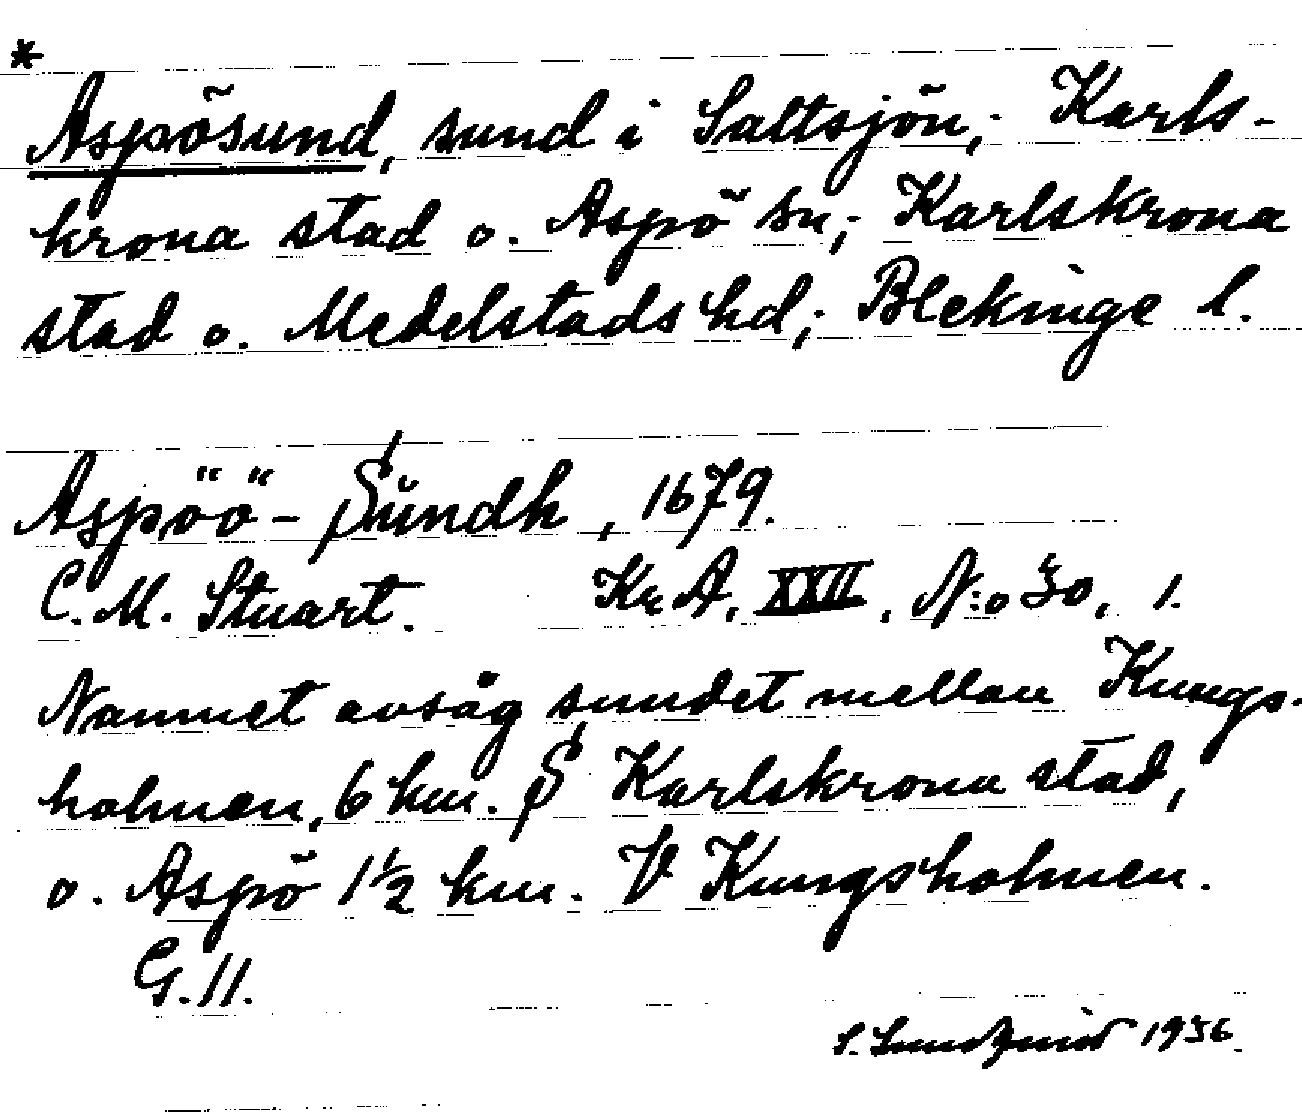 *
Aspösund, sund i Saltsjön; Karls-
krona stad o. Aspö sn; Karlskrona
stad o. Medelstads hd; Blekinge l.
Aspöö-Sŭndh, 1679.
C. M. Stuart. KrA, XXII, N:o 30, 1.
Namnet avsåg sundet mellan Kungs-
holmen, 6 km. S Karlskrona stad,
o. Aspö 1½ km. V Kungsholmen.
G.11.
S. Lundqvist 1936.